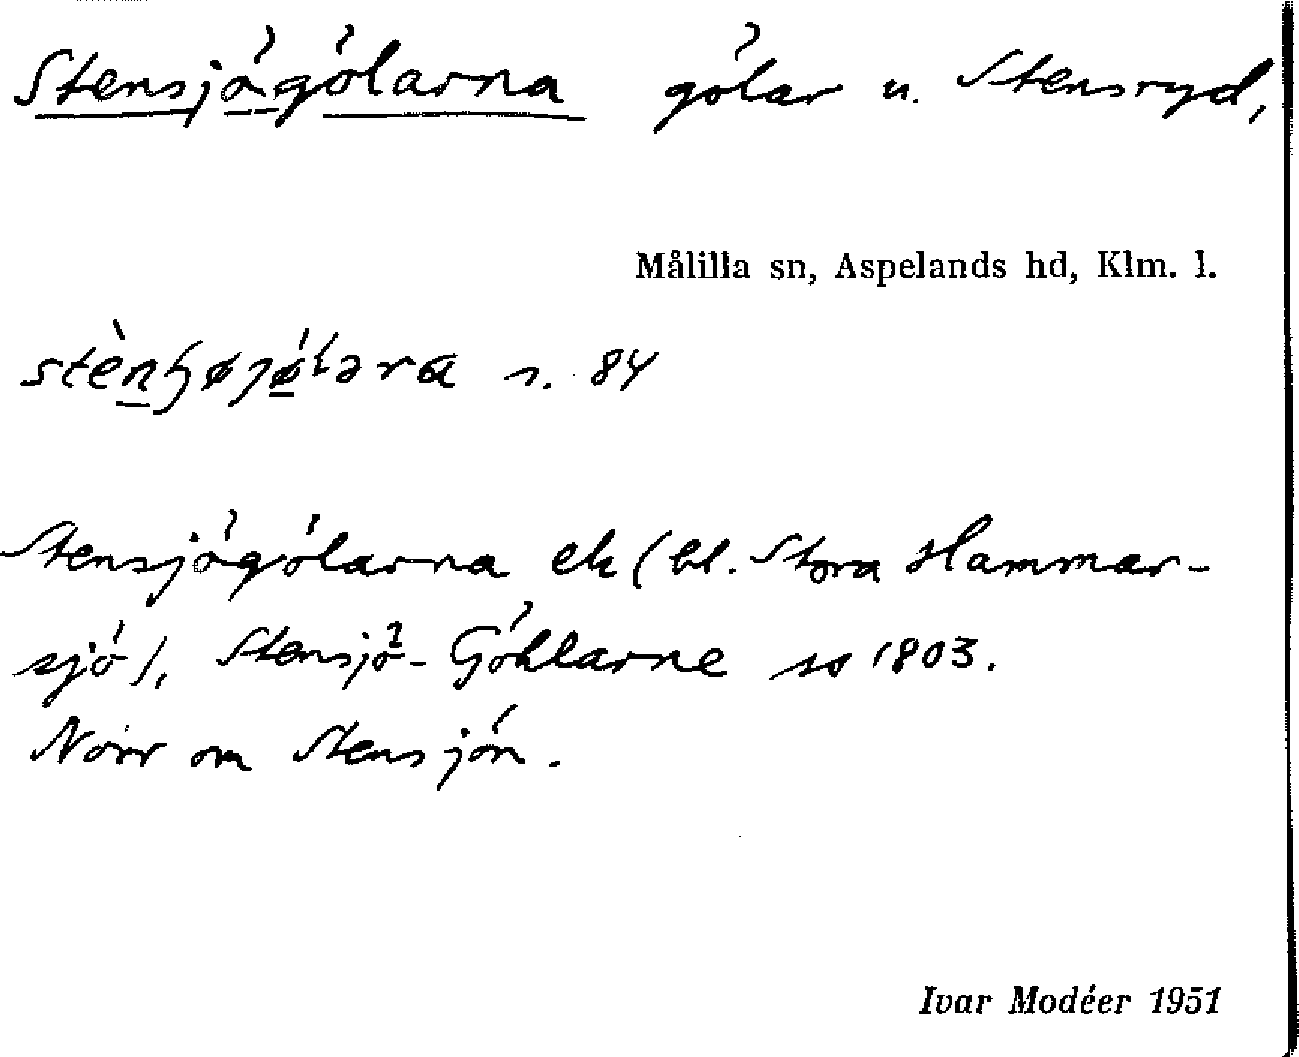 Stensjögölarna gölar u. Stensryd,
Målilla sn, Aspelands hd, Klm. l.
s. 84
Stensjögölarna ek (bl. Stora Hammar-
sjö), Stensjö-Göhlarne ss 1803.
Norr om Stensjön.
Ivar Modéer 1951